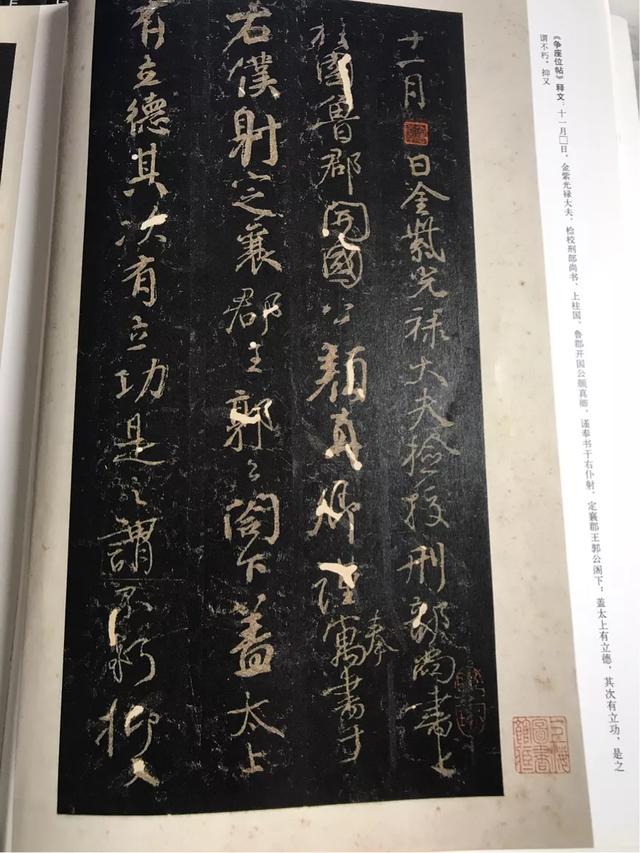 《争座位帖》释文：十一月□日，金紫光禄大夫、检校刑部尚书、上柱国、鲁郡开国公颜真卿，谨奉书于右仆射、定襄郡王郭公阁下：盖太上有立德，其次有立功，是之
谓不朽，抑又
十一月日金紫光禄大夫檢校刑部尚書上
柱國魯郡開國公顏真卿謹奉寓書于
右僕射定襄郡王郭公閤下蓋太上
有立德其次有立功是之謂不朽抑又